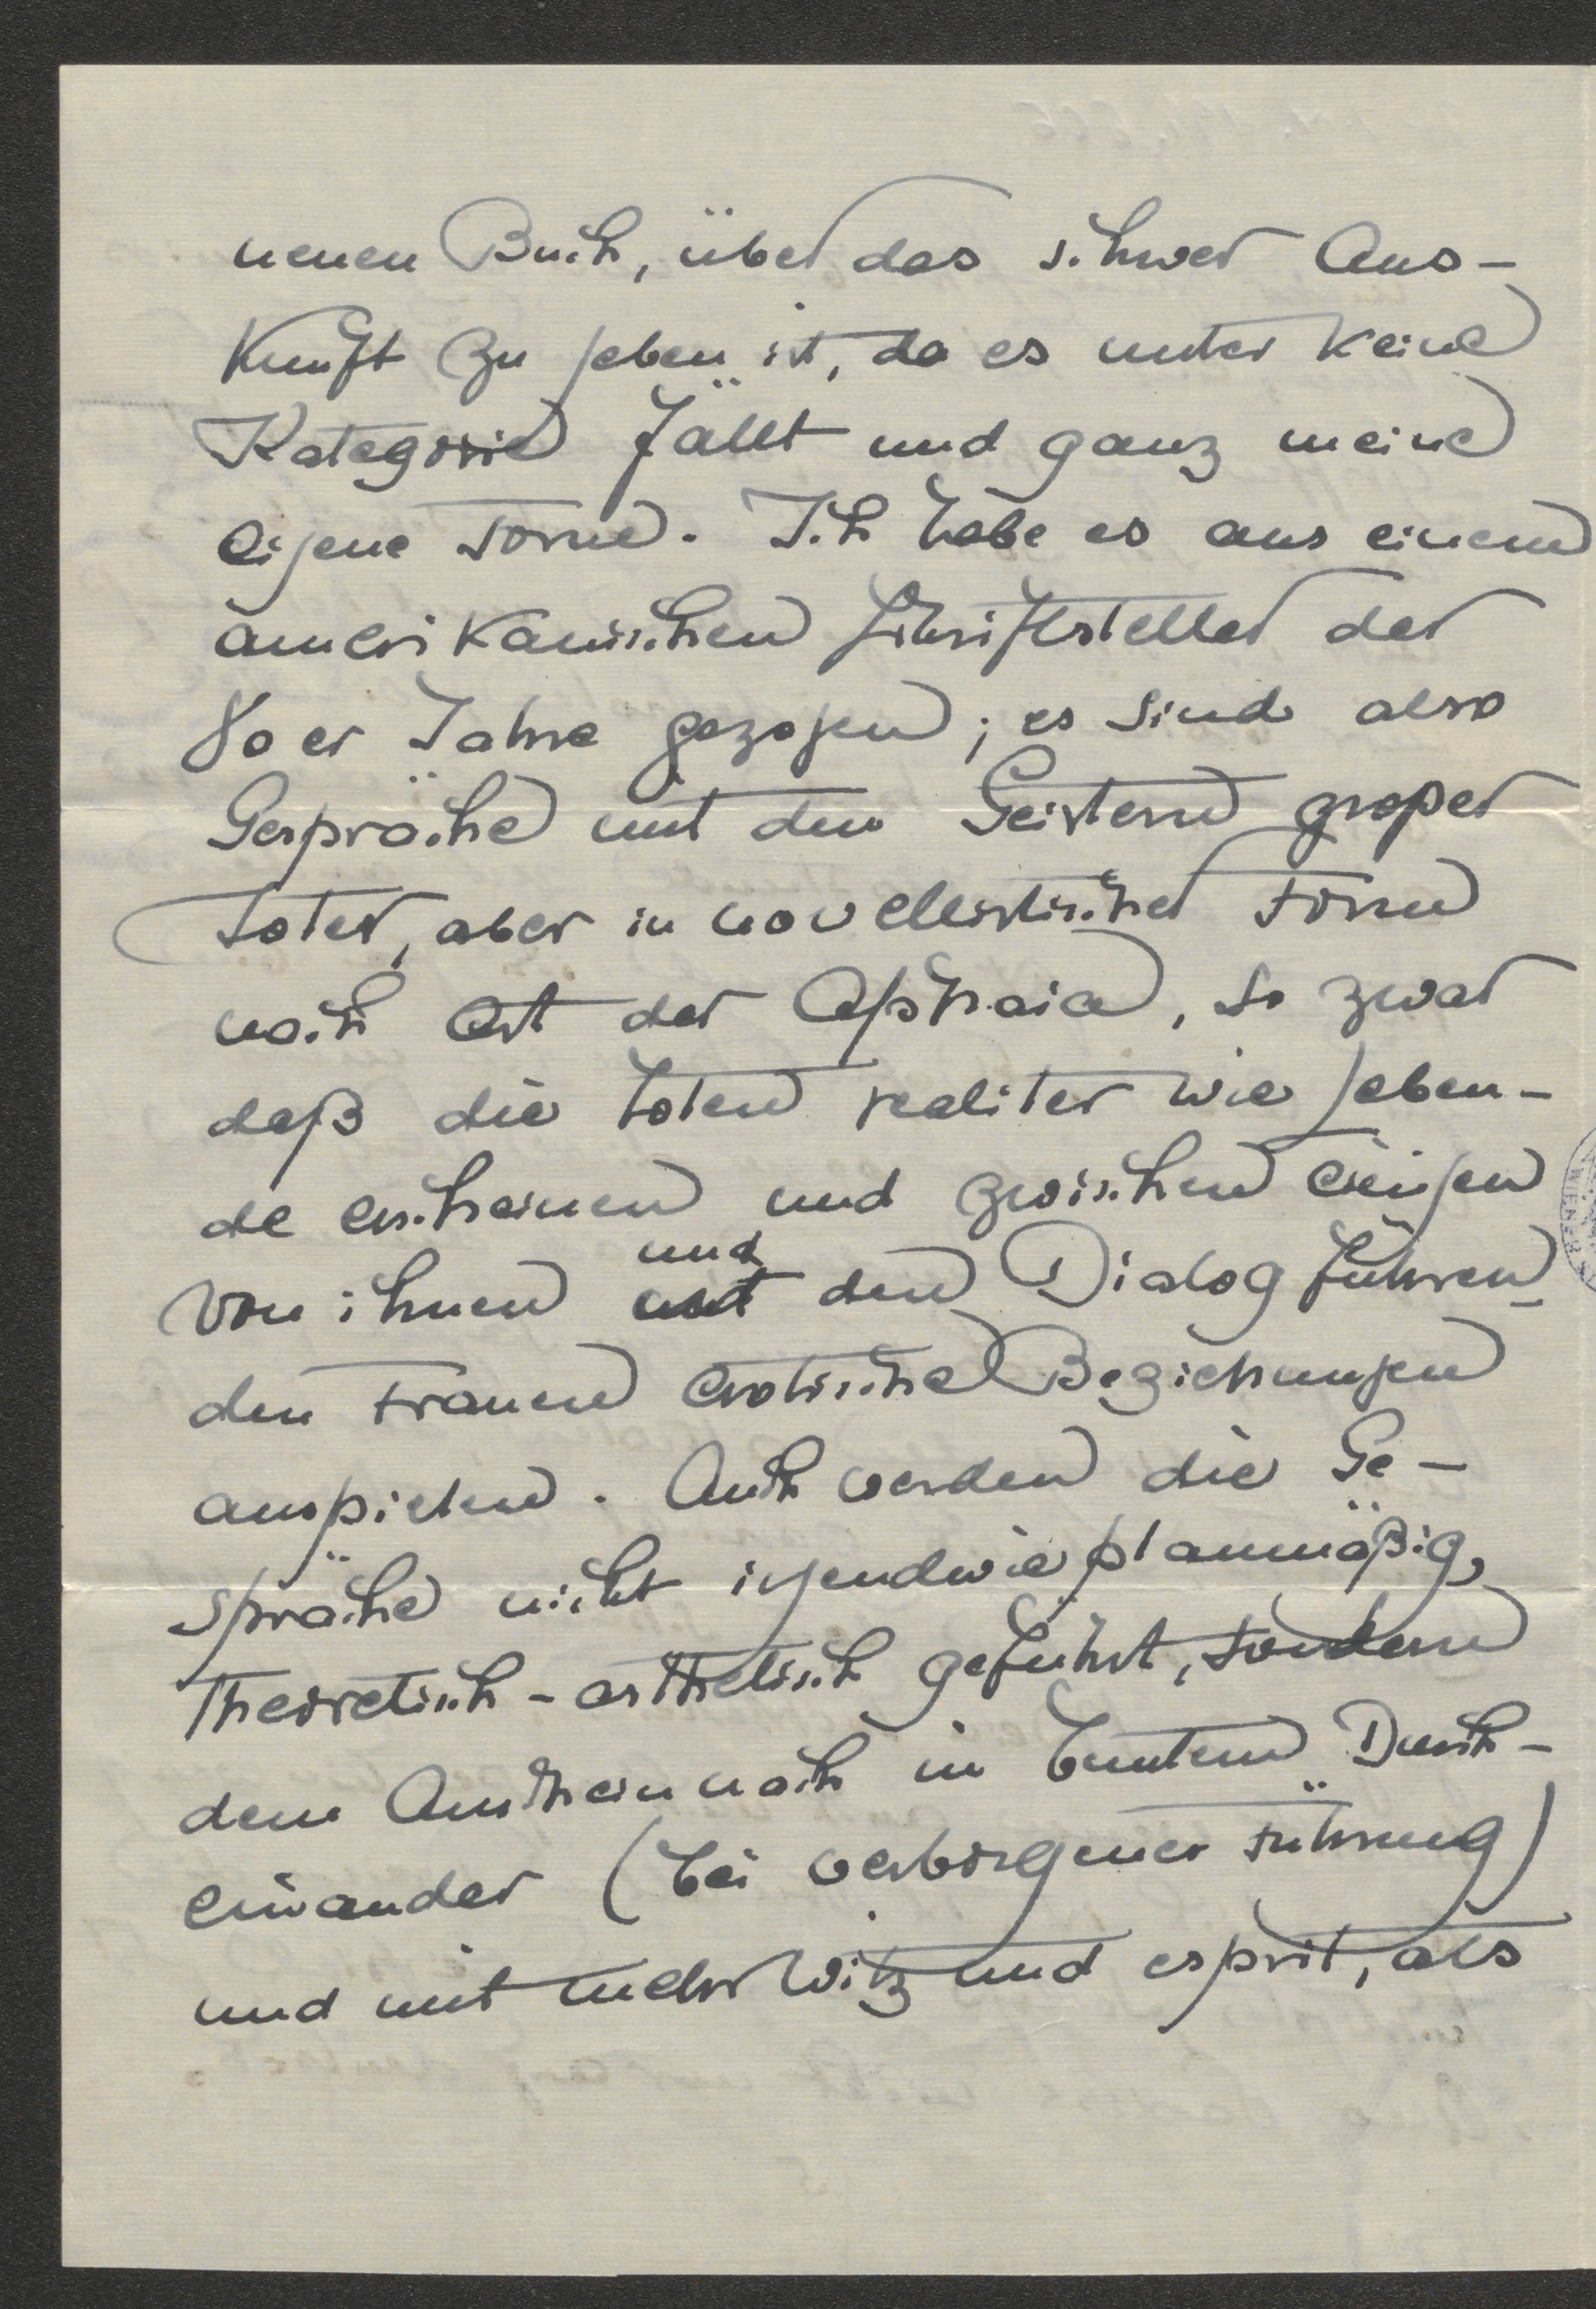 neuen Buch, über das schwer Aus-
kunft zu geben ist, da es unter keine
Kategorie fällt und ganz meine
eigene Form. Ich habe es aus einem
amerikanischen Schriftsteller der
80er Jahre gezogen; es sind also
Gespräche mit den Geistern großer
Toter, aber in novellistischer Form
nach Art der Astraia, so zwar
daß die Toten realiter wie Leben-
de erscheinen und zwischen einigen
von ihnen und den Dialog führen-
den Frauen erotische Beziehungen
anspielen. Auch werden die Ge-
spräche nicht irgendwie planmäßig,
theoretisch-ästhetisch geführt, sondern
dem Anschein nach in buntem Durch-
einander (bei verborgener Führung)
und mit mehr Witz und esprit, als